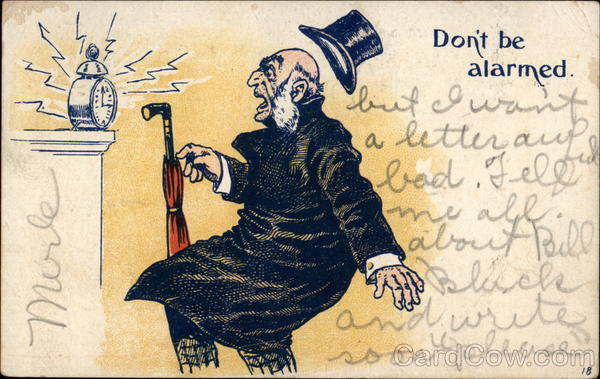 Don't be
alarmed.
but I want
a letter awful
bad. Tell
me all
about Bill
Pluck
and write
soon
Merle
CardCow.com
18